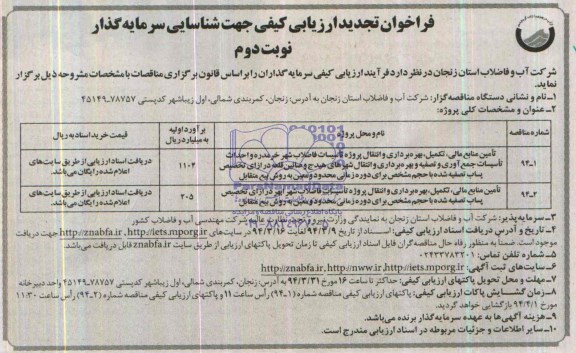 فراخوان تجدید ارزیابی کیفی جهت شناسایی سرمایه گذار
نوبت دوم
شرکت آب و فاضلاب استان زنجان در نظر دارد فرآیند ارزیابی کیفی سرمایه گذاران را براساس قانون برگزاری مناقصات با مشخصات مشروحه ذیل برگزار
نماید.
۱-نام و نشانی دستگاه مناقصه گزار: شرکت آب و فاضلاب استان زنجان به آدرس: زنجان، کمربندی شمالی، اول زیباشهر کدپستی ۷۸۷۵۷-۴۵۱۴۹
۲-عنوان و مشخصات کلی پروژه:
شماره مناقصه
نام و محل پروژه
برآورد اولیه به میلیارد ریال
قیمت خرید اسناد به ریال
۹۴-۱
تأمین منابع مالی، تکمیل، بهره برداری و انتقال پروژه تأسیسات فاضلاب شهر خرمدره و احداث
تأسیسات جمع آوری و تصفیه و بهره برداری و انتقال شهرهای هیدج و صائین قلعه در ازای تخصیص
پساب تصفیه شده با حجم مشخص برای دوره زمانی محدود و معین به روش بیع متقابل
۱۱۰۴
دریافت اسناد ارزیابی از طریق سایت های
اعلام شده رایگان می باشد.
۹۴-۲
تأمین منابع مالی، تکمیل، بهره برداری و انتقال پروژه تأسیسات فاضلاب شهر ابهر در ازای تخصیص
پساب تصفیه شده با حجم مشخص برای دوره زمانی محدود و معین به روش بیع متقابل
۲۰۵
دریافت اسناد ارزیابی از طریق سایت های
اعلام شده رایگان می باشد.
۳-سرمایه پذیر: شرکت آب و فاضلاب استان زنجان به نمایندگی وزارت نیرو و تحت نظارت عالیه شرکت مهندسی آب و فاضلاب کشور
۴-تاریخ و آدرس دریافت اسناد ارزیابی کیفی: اسناد از تاریخ ۹۴/۳/۹ لغایت ۹۴/۳/۱۶ در سایت های http://znabfa.ir، http://iets.mporg.ir جهت دریافت
موجود است. ضمناً به منظور رفاه حال مناقصه گران فایل اسناد ارزیابی کیفی تا زمان تحویل پاکتهای ارزیابی از طریق سایت znabfa.ir قابل دریافت می باشد.
۵-شماره تلفن تماس: ۰۲۴۳۳۷۸۳۲۰۱
۶-سایت های ثبت آگهی: http://znabfa.ir, http://nww.ir, http://iets.mporg.ir
۷-مهلت و محل تحویل پاکتهای ارزیابی کیفی: حداکثر تا ساعت ۱۶ مورخ ۹۴/۳/۳۱ به آدرس: زنجان، کمربندی شمالی، اول زیباشهر، کدپستی ۷۸۷۵۷-۴۵۱۴۹ واحد دبیرخانه
۸-زمان گشایش پاکات ارزیابی کیفی: پاکتهای ارزیابی کیفی مناقصه شماره (۹۴-۱) رأس ساعت ۱۱ و پاکتهای ارزیابی کیفی مناقصه شماره (۹۴-۲) رأس ساعت ۱۱:۳۰
مورخ ۹۴/۴/۱ بازگشایی خواهد گردید.
۹-هزینه آگهی ها به عهده سرمایه گذار برنده می باشد.
۱۰-سایر اطلاعات و جزئیات مربوطه در اسناد ارزیابی مندرج است.